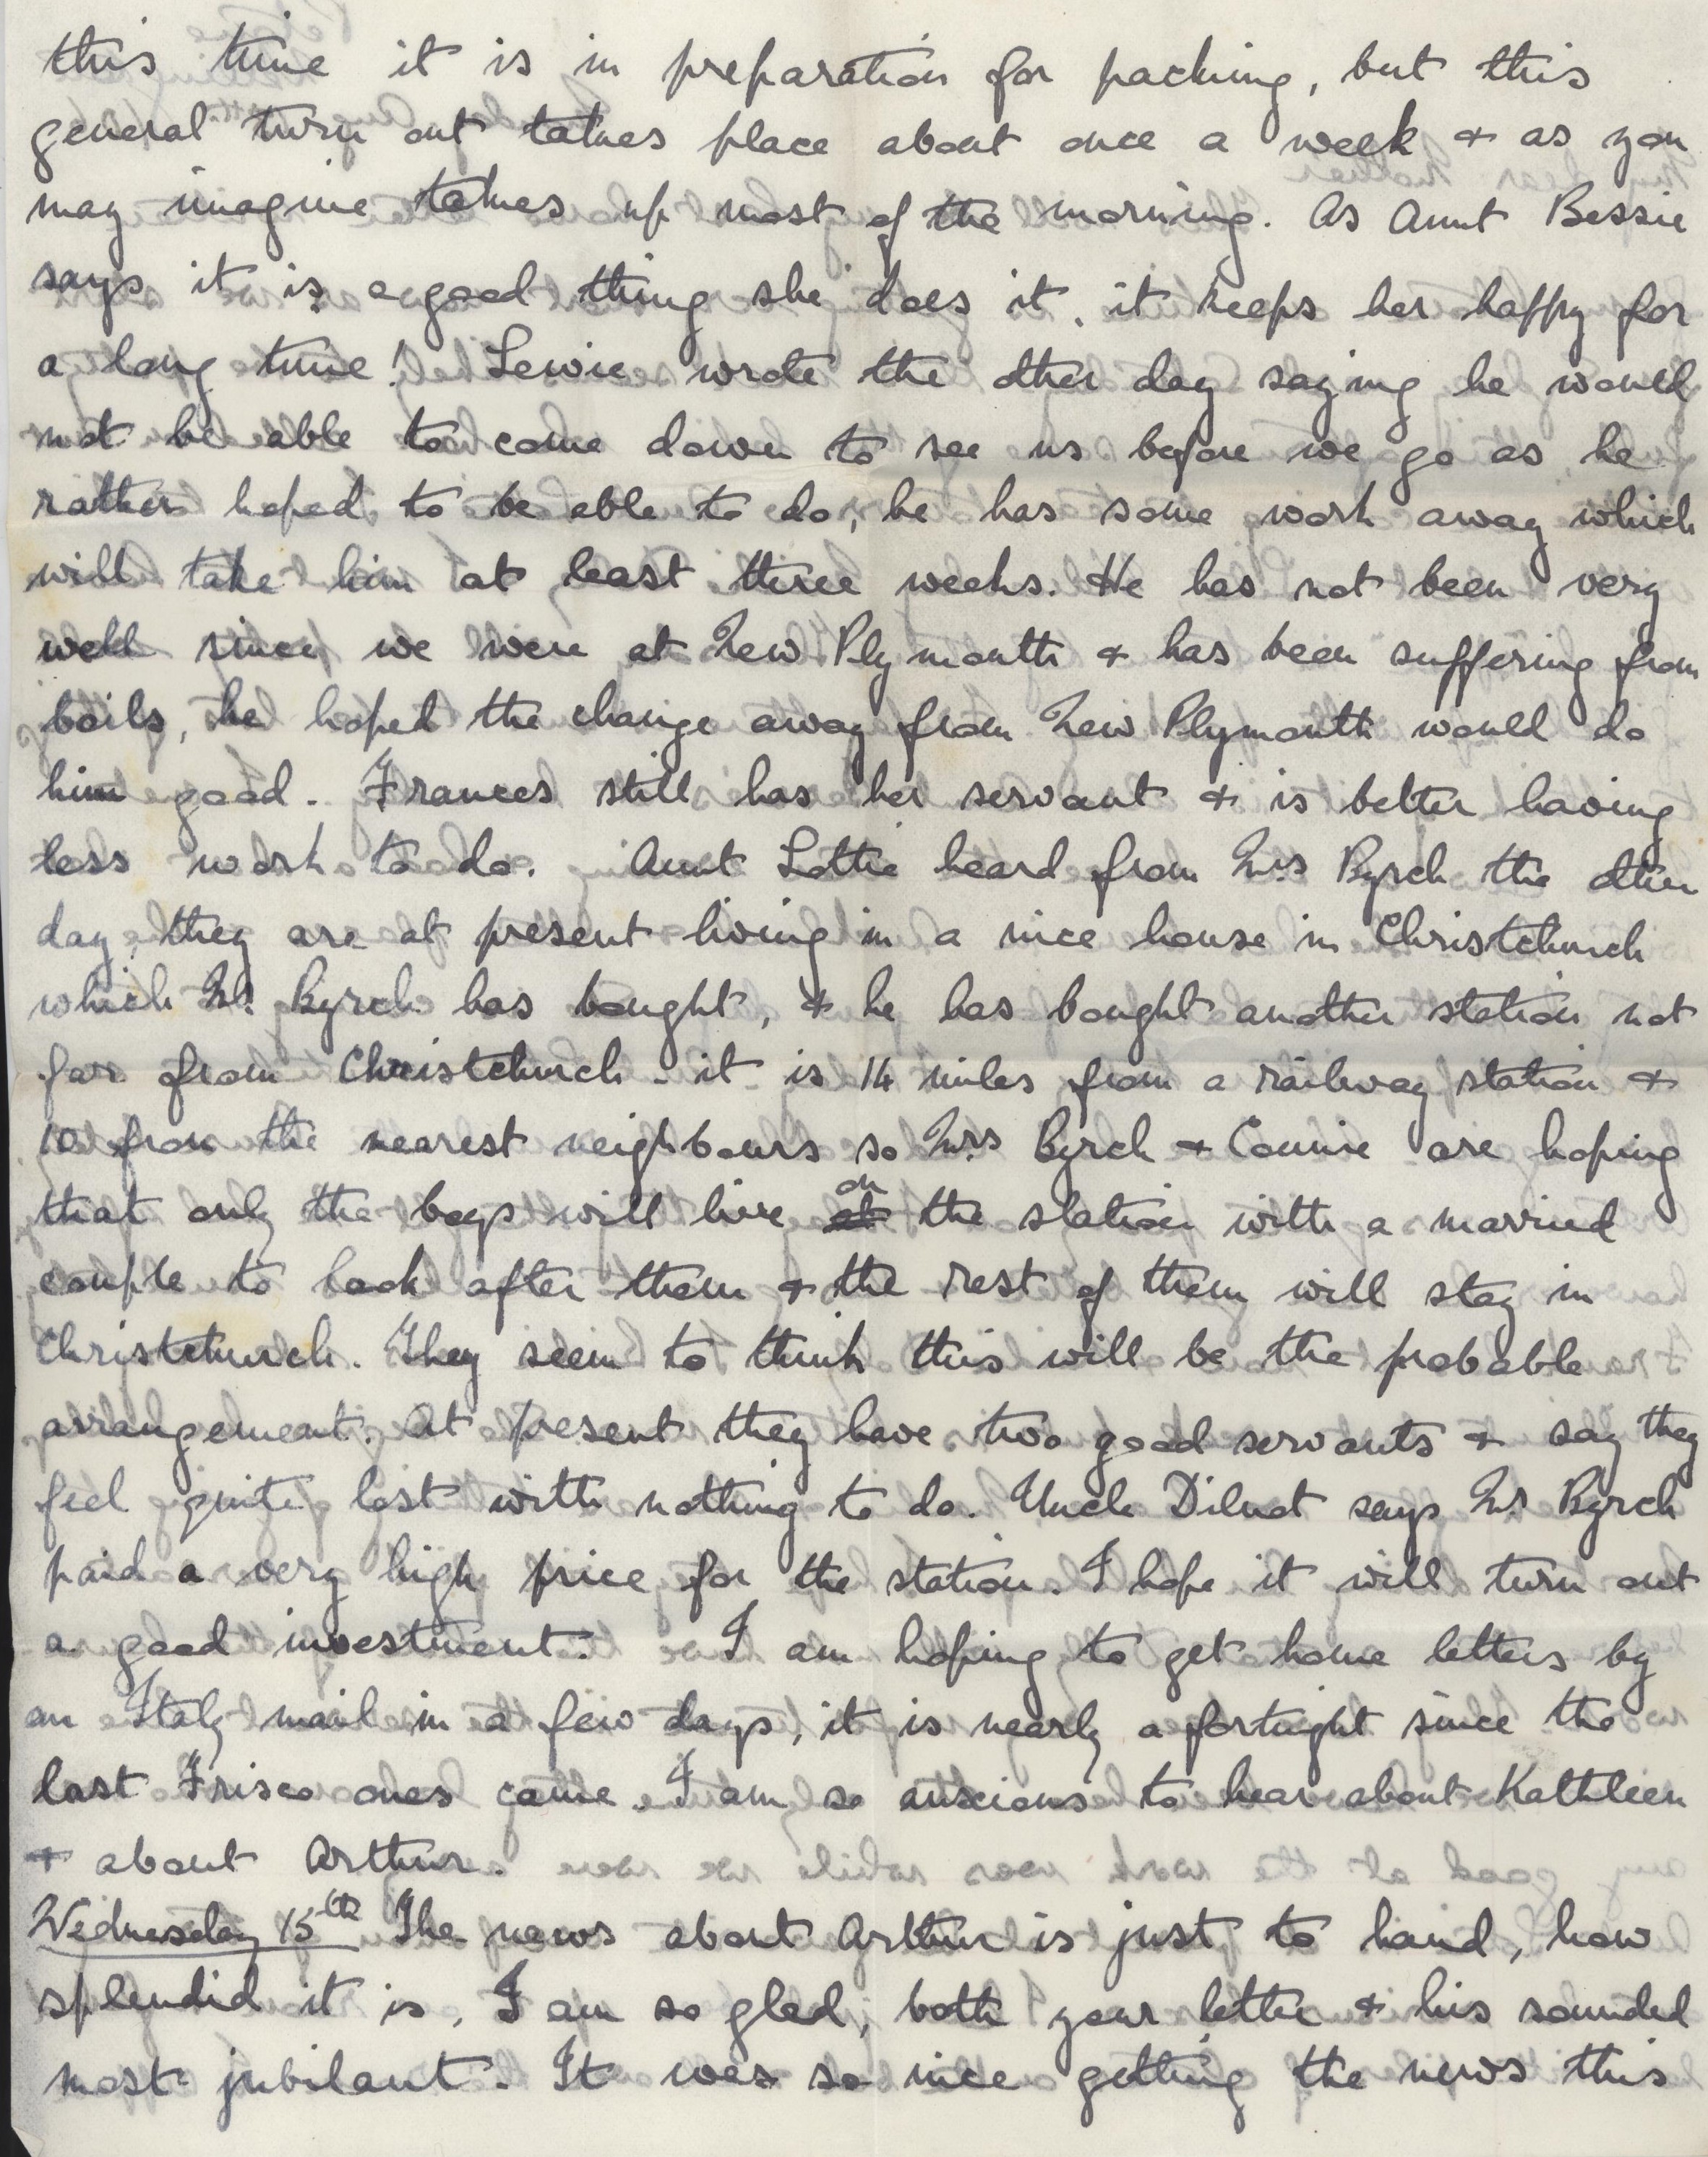 this time it is in preparation for packing, but this
general turn out takes place about once a week & as you
may imagine takes up most of the morning. As Aunt Bessie
says it is a good thing she does it, it keeps her happy for
a long time! Lewie wrote the other day saying he would
not be able to come down to see us before we go as he
rather hoped to be able to do, he has some work away which
will take him at least three weeks. He has not been very
well since we were at New Plymouth & has been suffering from
boils, he hoped the change away from New Plymouth would do
him good. Frances still has her servant & is better having
less work to do. Aunt Lottie heard from Mrs Byrch the other
day, they are at present living in a nice house in Christchurch
which Mr. Byrch has bought, & he has bought another station not
far from Christchurch - it is 14 miles from a railway station &
10 from the nearest neighbours so Mrs Byrch & Connie are hoping
that only the boys will live at on the station with a married
couple to look after them & the rest of them will stay in
Christchurch. They seem to think this will be the probable
arrangement. At present they have two good servants & say they
feel quite lost with nothing to do. Uncle Dilnot says Mr Byrch
paid a very high price for the station. I hope it will turn out
a good investment. I am hoping to get home letters by
an Italy mail in a few days, it is nearly a fortnight since the
last Frisco ones came. I am so anxious to hear about Kathleen
& about Arthur.
Wednesday 15th The news about Arthur is just to hand, how
splendid it is, I am so glad, both your letter & his sounded
most jubilant. It was so nice getting the news this